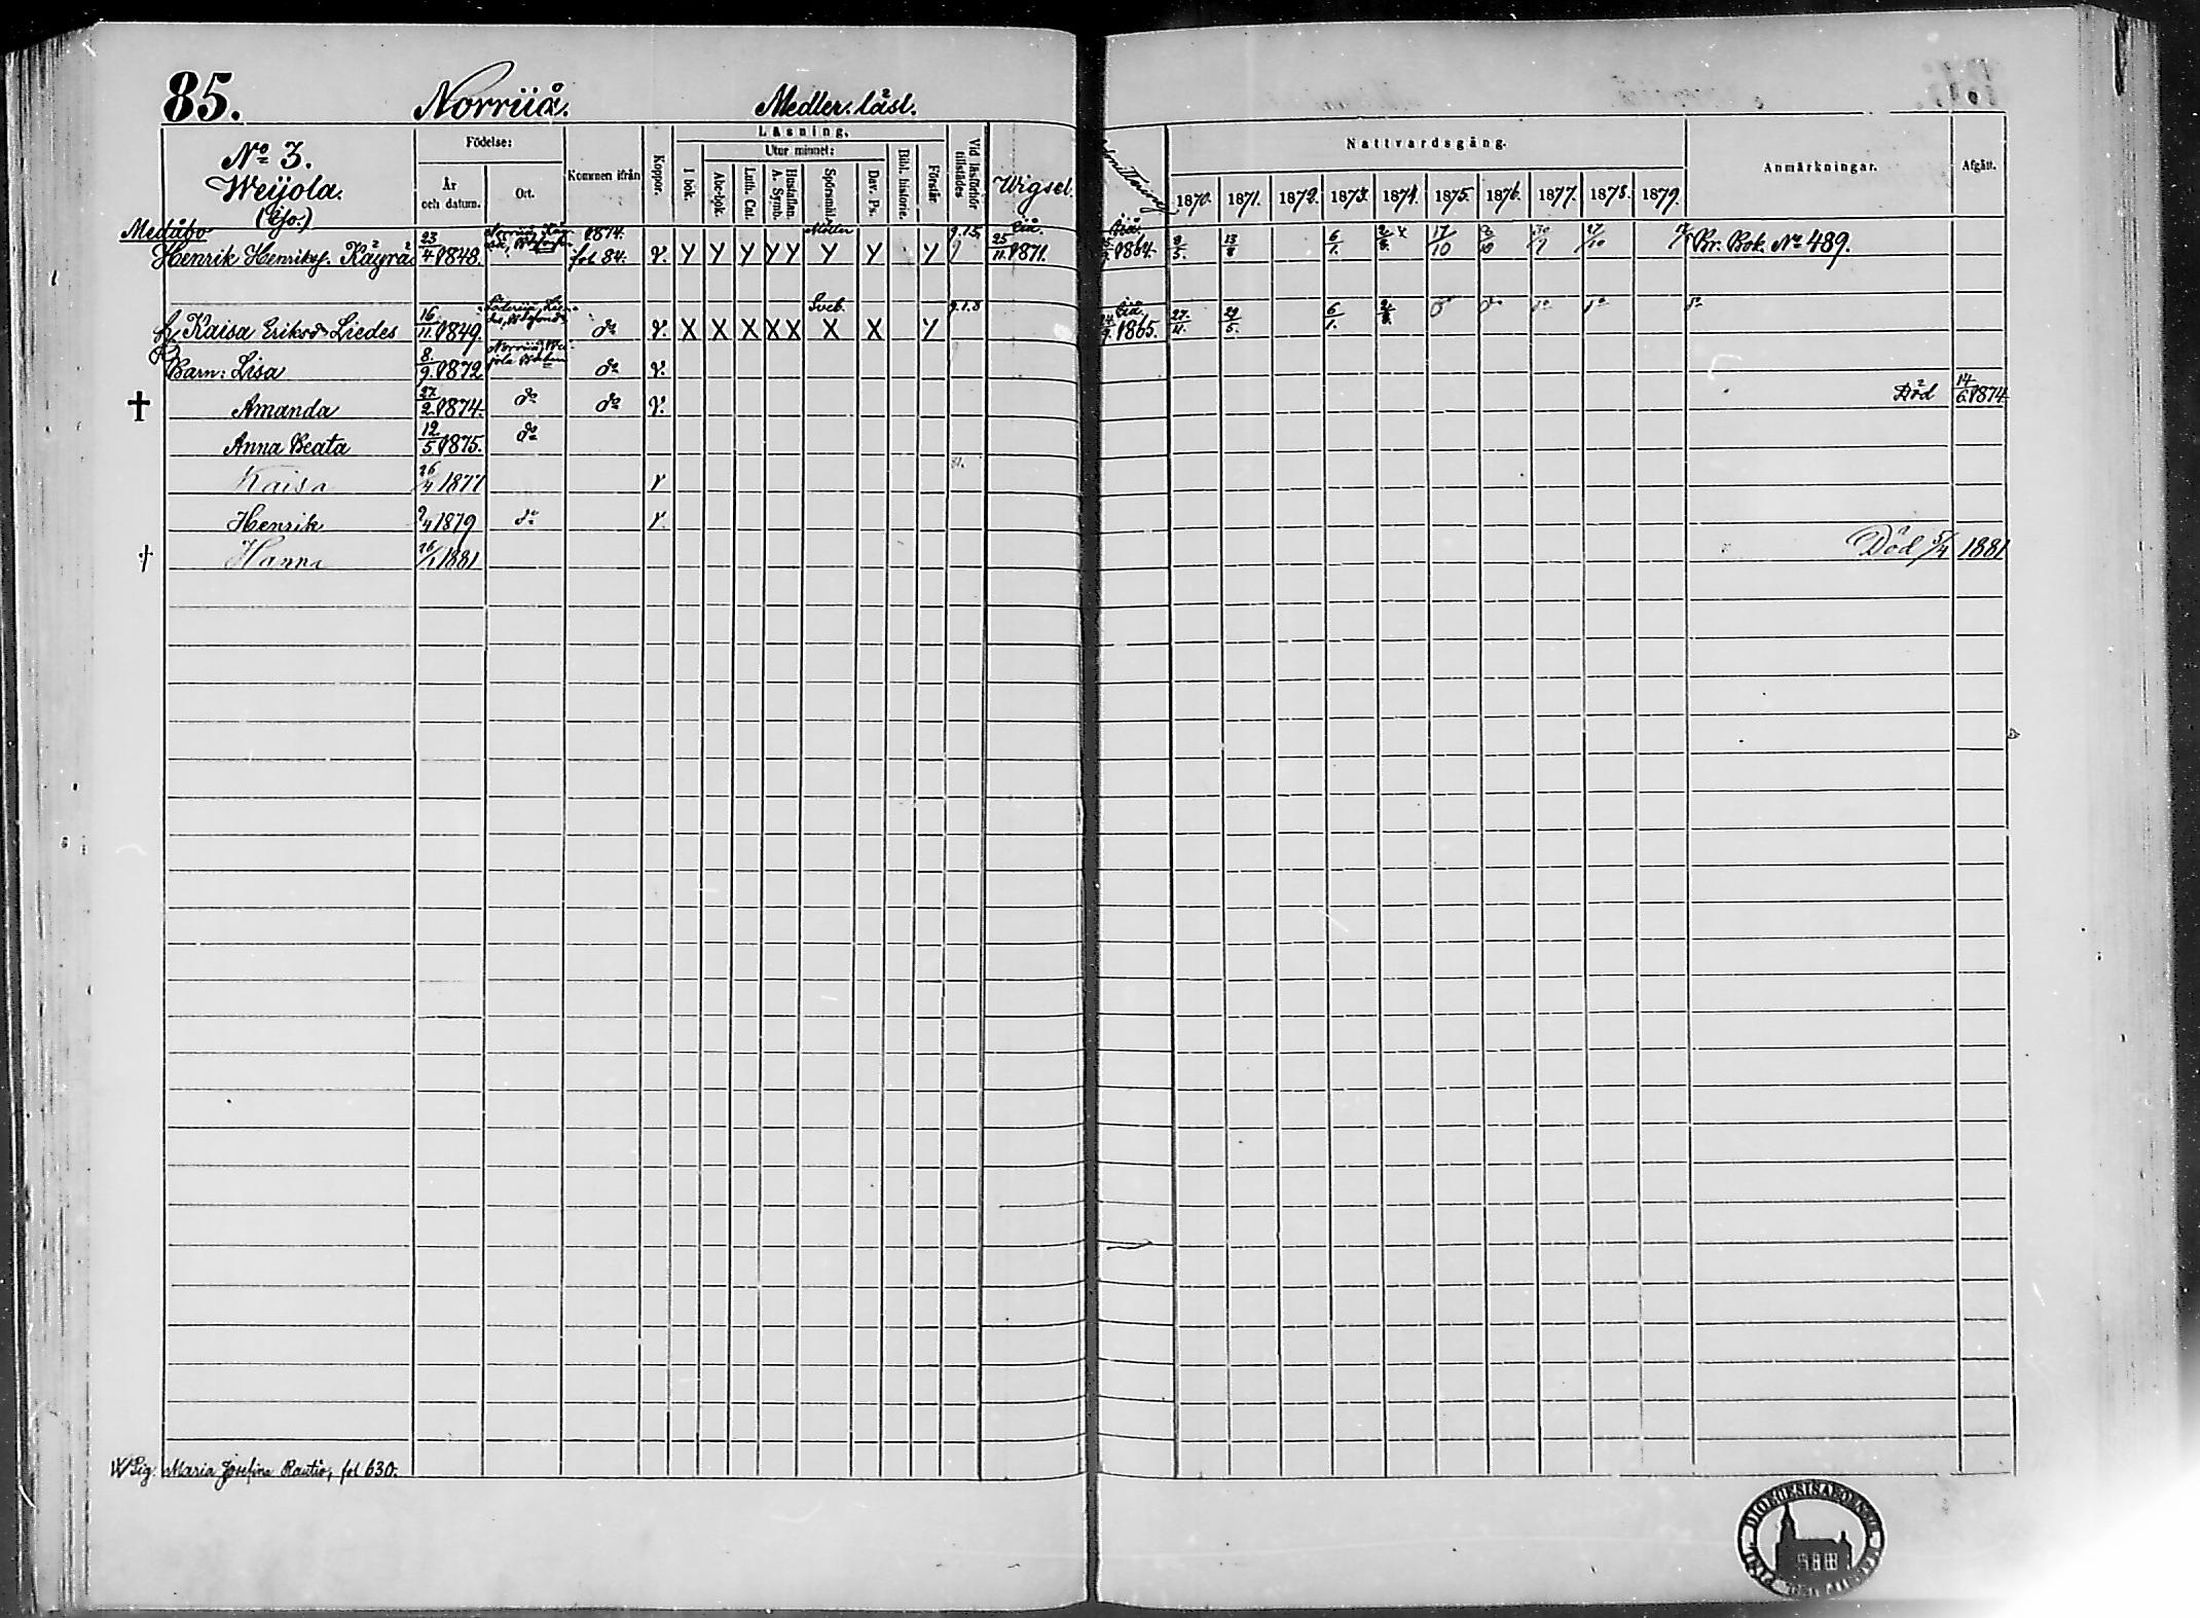 85. Norriiå. Medler. läsl.
No 3.
Weijola.
Födelse:
År och datum.
Ort.
Kommen ifrån
Koppor.
Läsning.
I bok.
Utur minnet:
Abc-bok.
Luth. Cat.
Hustaflan. A. Symb.
Spörsmål.
Dav. Ps.
Bibl. historie.
Förstår
Vid läsförhör tillstädes
Wigsel.
Nattvardsgång.
1870. 1871. 1872. 1873. 1874. 1875. 1876. 1877. 1878. 1879.
Anmärkningar.
Afgått.
Medåbo
Henrik Henriksf. Käyrä 23/4 1848. 1874. fol 84. v. Y Y Y Y Y Y Y Y 25/11 1871. 1864. 13/8 6/1. 17/10 27/10 Pr. Bok. No 489.
h. Kaisa Eriksd Liedes 16/11 1849. do v. X X X X X Sveb. X X Y 1865. 27/11. 29/5. 6/1. do do do do
Barn: Lisa 8/9 1872 do v.
† Amanda 27/2 1874. do do v. Död 14/6 1874
Anna Beata 12/5 1875. do
Kaisa 26/4 1877 v
Henrik 9/4 1879 do v.
† Hanna 26/1 1881 Död 5/4 1881
Pig. Maria Josefina Rautio, fol 630.